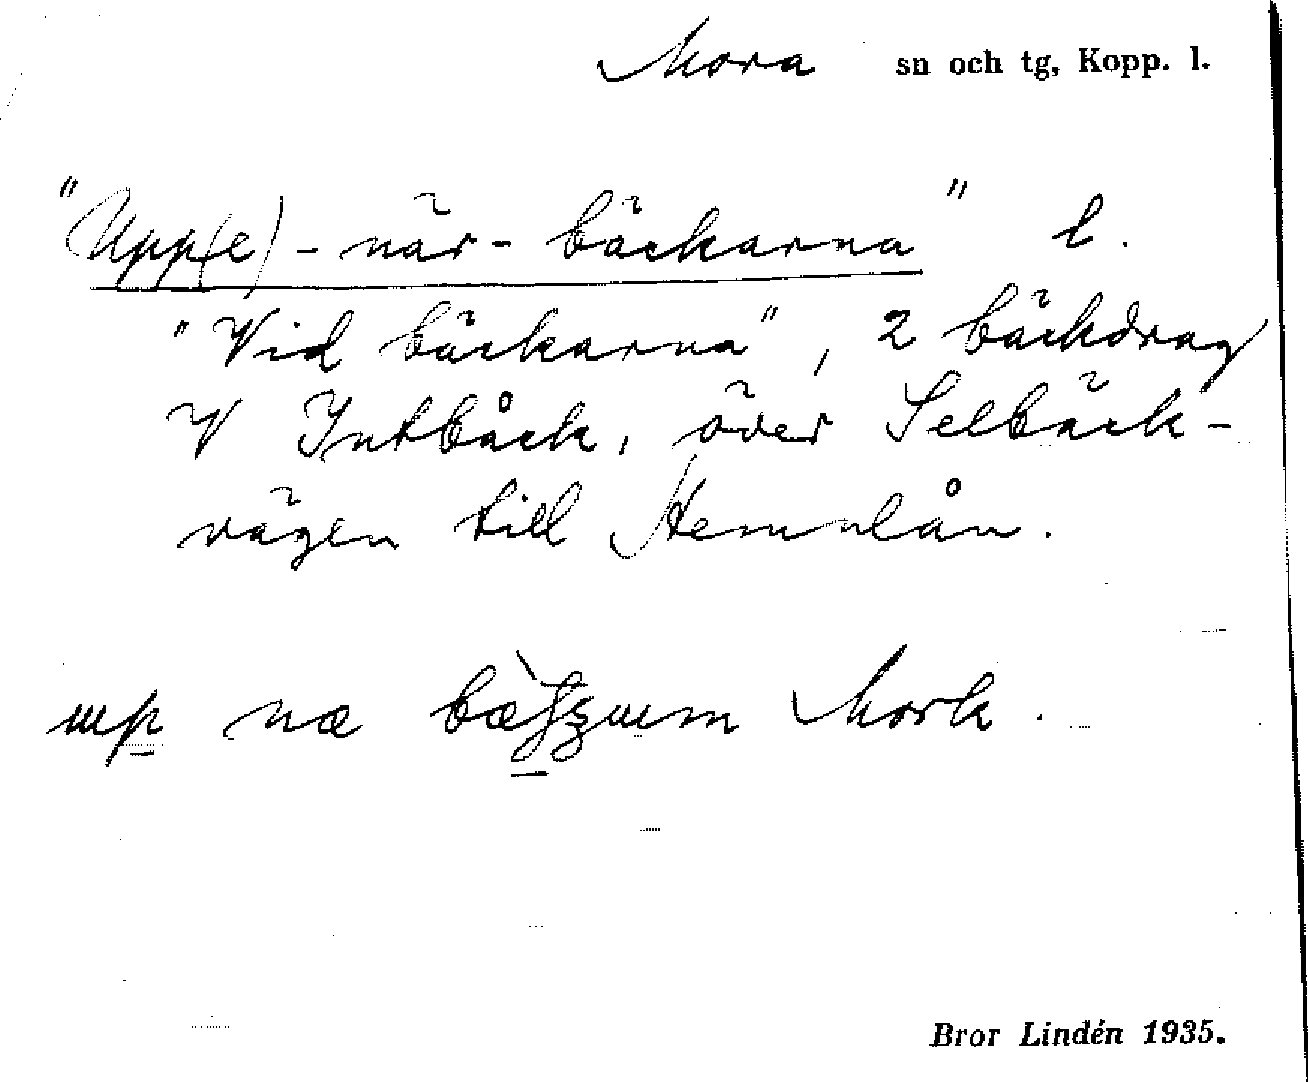 Mora sn och tg, Kopp. l.
"Upp(e)-när-bäckarna" l.
"Vid bäckarna", 2 bäckdrag
V Intbåck, över Selbäck-
vägen till Hemulån.
up næ Mork.
Bror Lindén 1935.